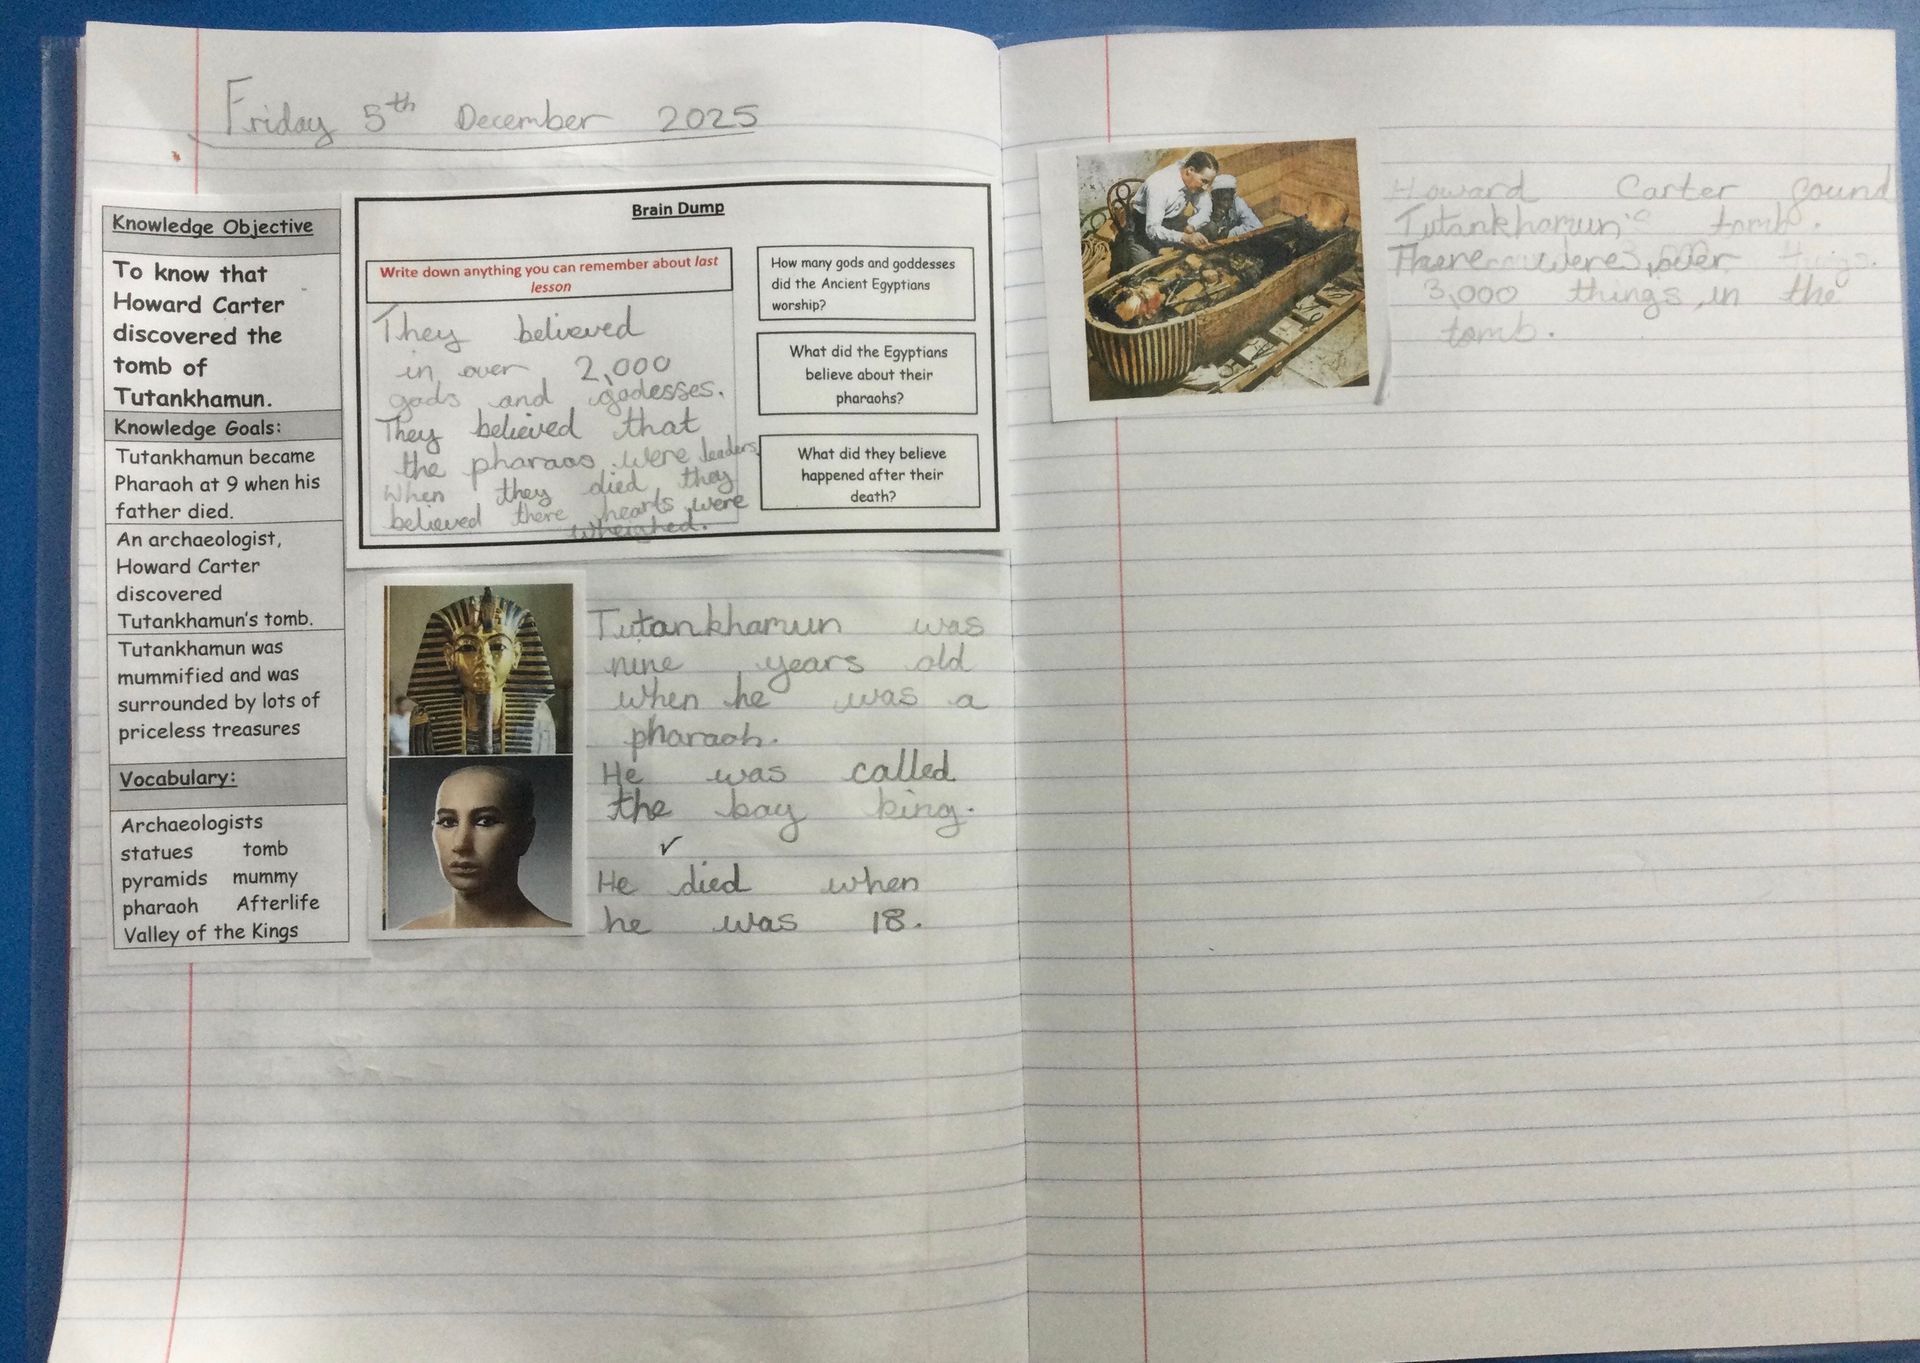 Friday 5th December 2025
Knowledge Objective
To know that
Howard Carter
discovered the
tomb of
Tutankhamun.
Knowledge Goals:
Tutankhamun became
Pharaoh at 9 when his
father died.
An archaeologist,
Howard Carter
discovered
Tutankhamun's tomb.
Tutankhamun was
mummified and was
surrounded by lots of
priceless treasures
Vocabulary:
Archaeologists
statues tomb
pyramids mummy
pharaoh Afterlife
Valley of the Kings
Brain Dump
Write down anything you can remember about last
lesson
They believed
in over 2,000
gods and godesses.
They believed that
the pharaos were leaders.
When they died they
believed there hearts were
How many gods and goddesses
did the Ancient Egyptians
worship?
What did the Egyptians
believe about their
pharaohs?
What did they believe
happened after their
death?
Tutankhamun was
nine years old
when he was a
pharaoh.
He was called
the boy king.
He died when
he was 18.
Howard Carter found
Tutankhamun's tomb.
There were over
3,000 things in the
tomb.